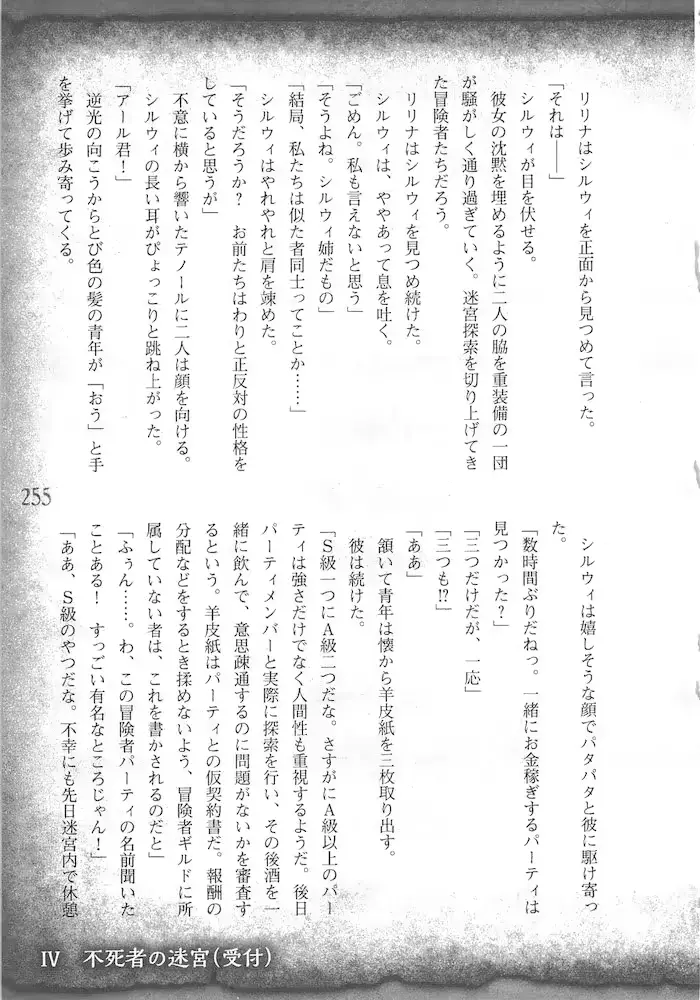 リリナはシルウィを正面から見つめて言った。
「それは――」
シルウィが目を伏せる。
彼女の沈黙を埋めるように二人の脇を重装備の一団
が騒がしく通り過ぎていく。迷宮探索を切り上げてき
た冒険者たちだろう。
リリナはシルウィを見つめ続けた。
シルウィは、ややあって息を吐く。
「ごめん。私も言えないと思う」
「そうよね。シルウィ姉だもの」
「結局、私たちは似た者同士ってことか……」
シルウィはやれやれと肩を竦めた。
「そうだろうか？　お前たちはわりと正反対の性格を
していると思うが」
不意に横から響いたテノールに二人は顔を向ける。
シルウィの長い耳がぴょっこりと跳ね上がった。
「アール君！」
逆光の向こうからとび色の髪の青年が「おう」と手
を挙げて歩み寄ってくる。
シルウィは嬉しそうな顔でパタパタと彼に駆け寄っ
た。
「数時間ぶりだねっ。一緒にお金稼ぎするパーティは
見つかった？」
「三つだけだが、一応」
「三つも!?」
「ああ」
頷いて青年は懐から羊皮紙を三枚取り出す。
彼は続けた。
「Ｓ級一つにＡ級二つだな。さすがにＡ級以上のパー
ティは強さだけでなく人間性も重視するようだ。後日
パーティメンバーと実際に探索を行い、その後酒を一
緒に飲んで、意思疎通するのに問題がないかを審査す
るという。羊皮紙はパーティとの仮契約書だ。報酬の
分配などをするとき揉めないよう、冒険者ギルドに所
属していない者は、これを書かされるのだと」
「ふぅん……。わ、この冒険者パーティの名前聞いた
ことある！　すっごい有名なところじゃん！」
「ああ、Ｓ級のやつだな。不幸にも先日迷宮内で休憩
255
IV　不死者の迷宮（受付）